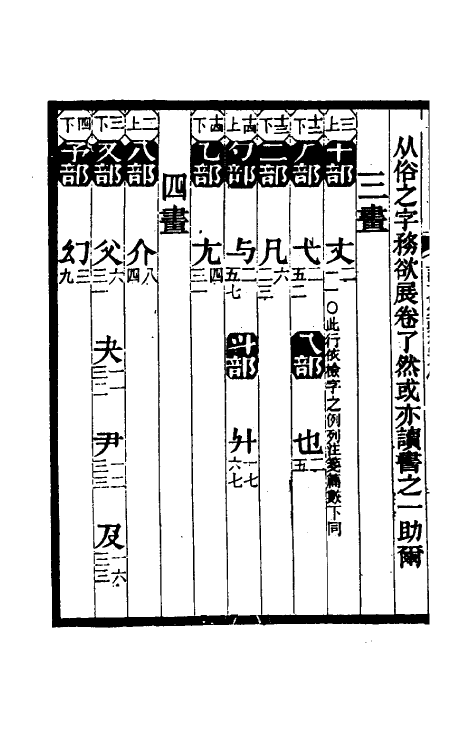 从俗之字務欲展卷了然或亦讀書之一助爾
三畫
三上 十部 丈 二 一一 ○此行依檢字之例列注葉篇數下同
十二下 厂部 弋 二 五二 乁部 也 二 五
十三下 二部 凡 六 二三
十四上 勺部 与 二 五七 斗部 升 一七 六七
十四下 乙部 尤 四 三一
四畫
二上 八部 介 八 四
三下 又部 父 六 三一 夬 一二 三二 尹 一二 三三 及 一六 三三
四下 予部 幻 三 九